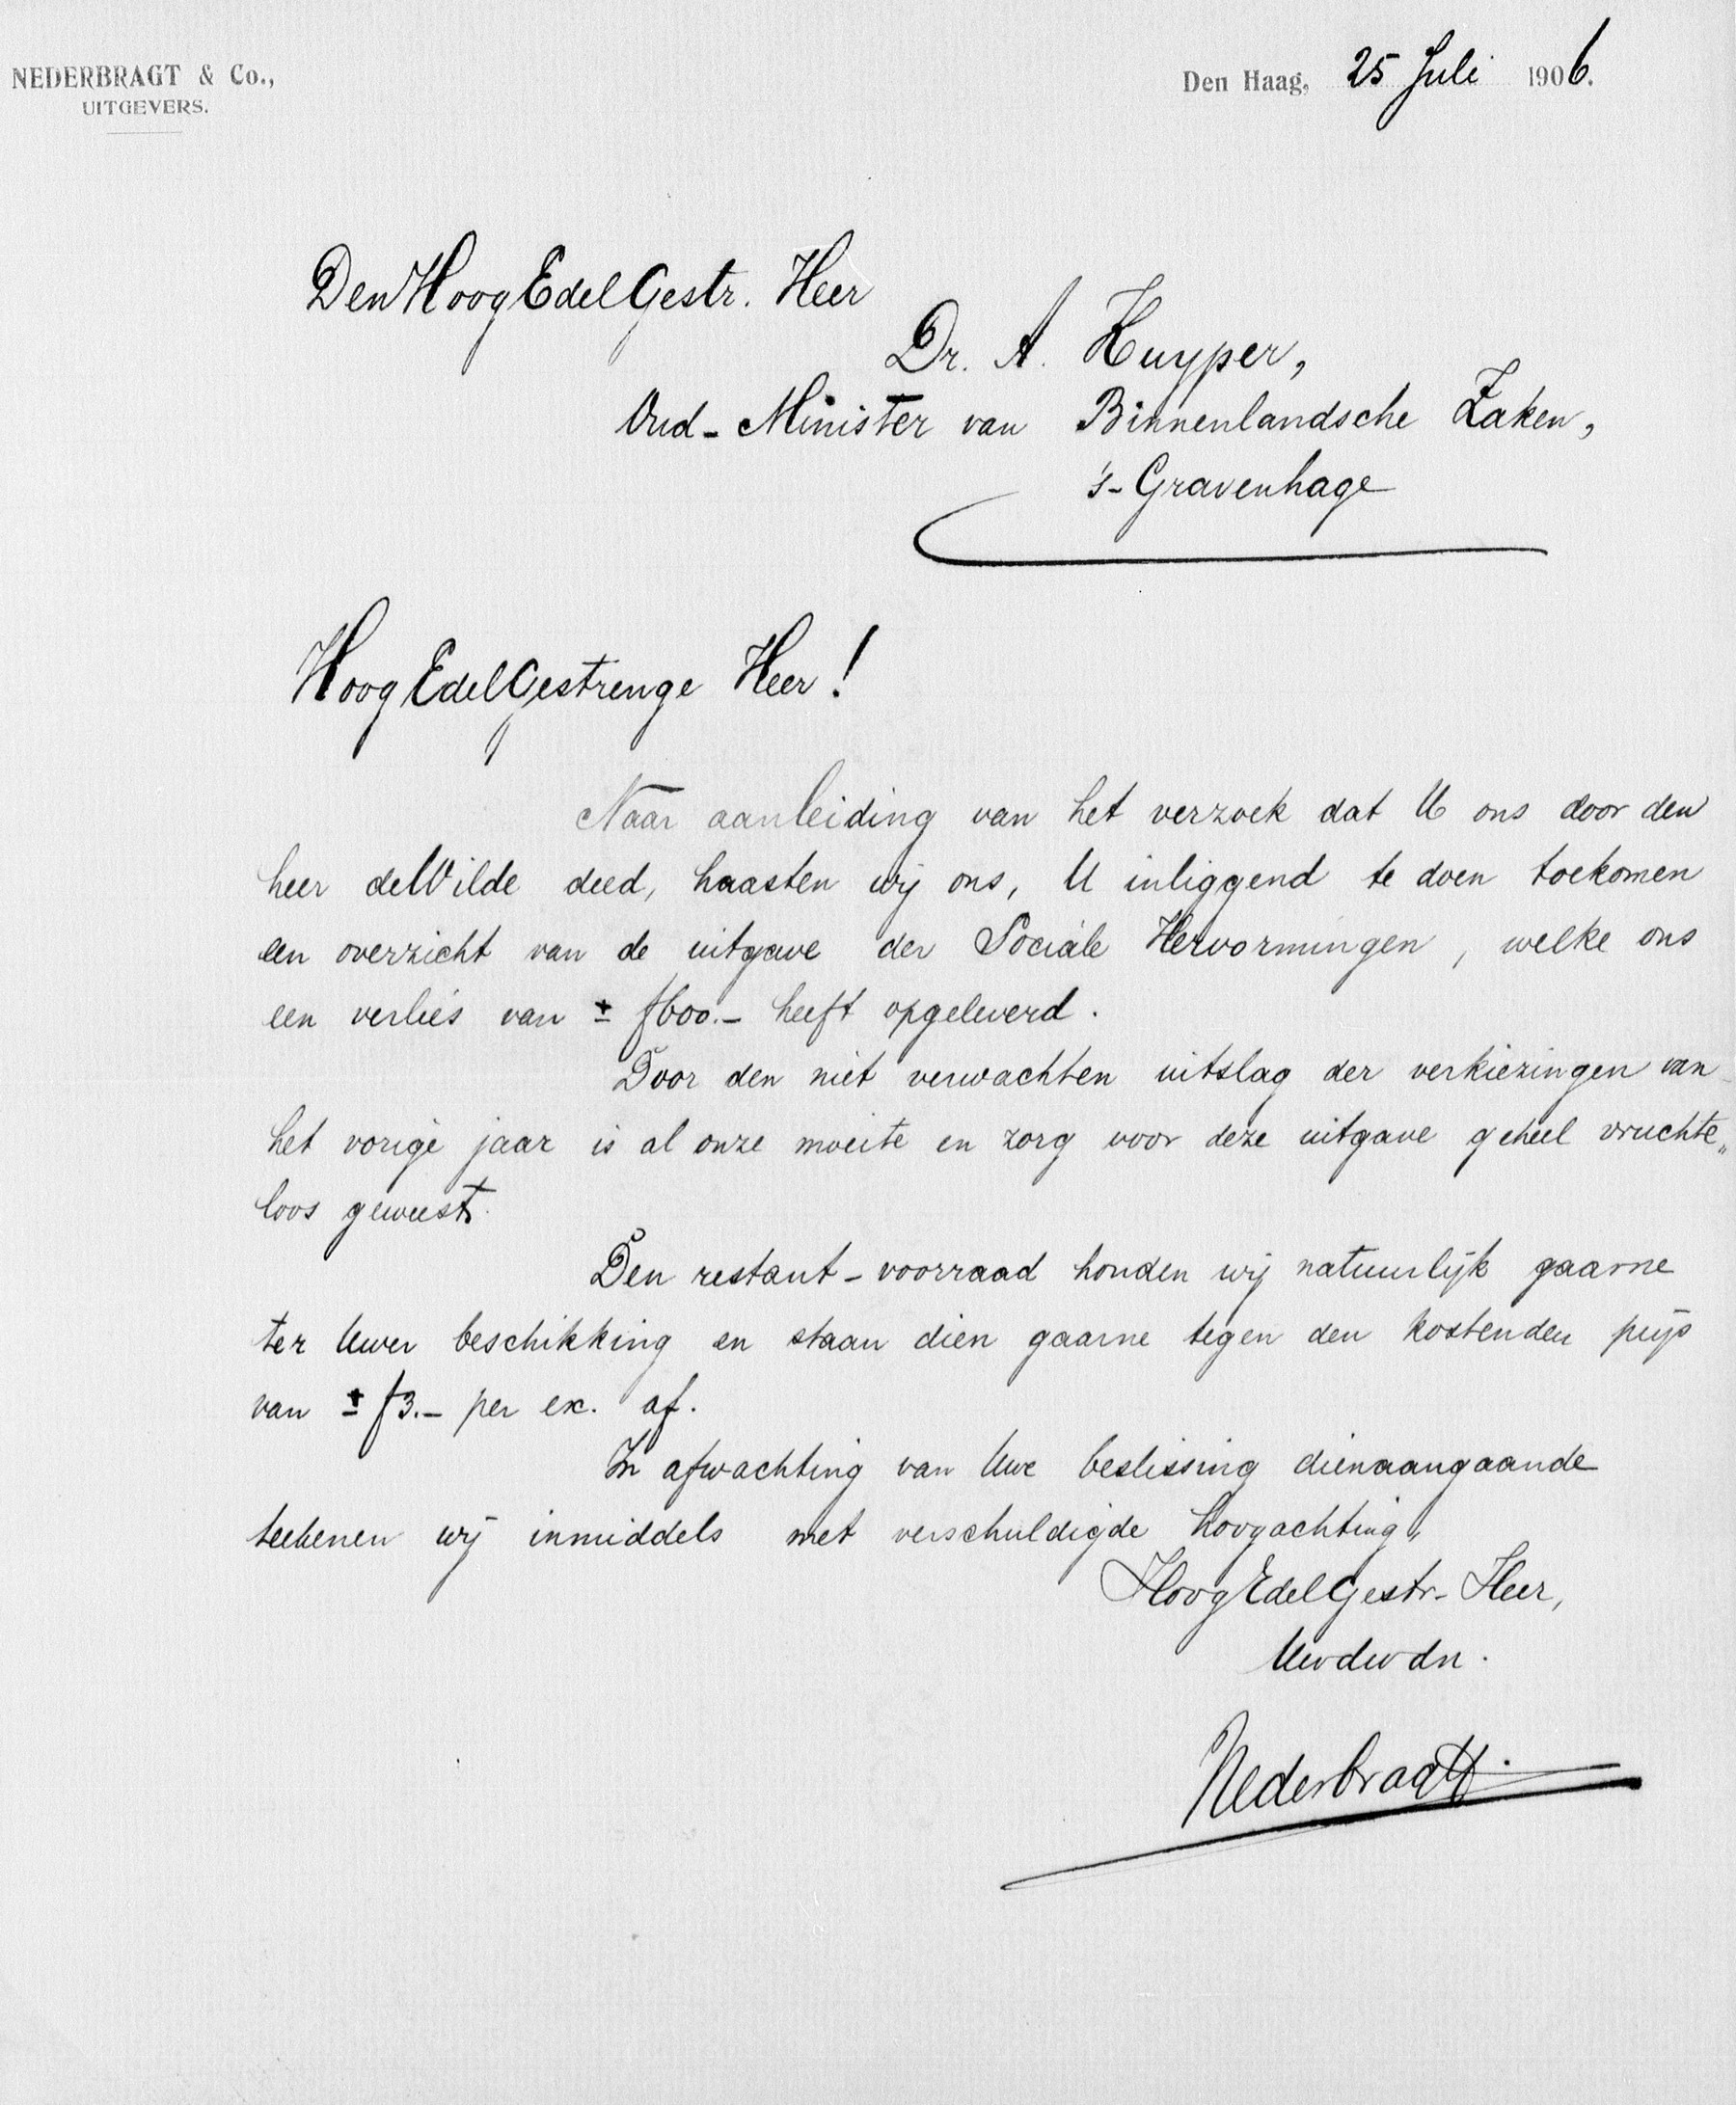 NEDERBRAGT & Co.,
UITGEVERS.
Den Haag, 25 Juli 1906.
Den HoogEdelGestr. Heer
Dr. A. Kuyper,
Oud-Minister van Binnenlandsche Zaken,
's-Gravenhage
HoogEdelGestrenge Heer!
Naar aanleiding van het verzoek dat U ons door den
heer de Wilde deed, haasten wij ons, U inliggend te doen toekomen
een overzicht van de uitgave der Sociale Hervormingen, welke ons
een verlies van ± f600.- heeft opgeleverd.
Door den niet verwachten uitslag der verkiezingen van
het vorige jaar is al onze moeite en zorg voor deze uitgave geheel vruchte„
loos geweest.
Den restant-voorraad houden wij natuurlijk gaarne
ter Uwer beschikking en staan dien gaarne tegen den kostenden prijs
van ± f3.- per ex. af.
In afwachting van Uwe beslissing dienaangaande
teekenen wij inmiddels met verschuldigde hoogachting,
HoogEdelGestr. Heer,
Uwdwdn.
Nederbragt